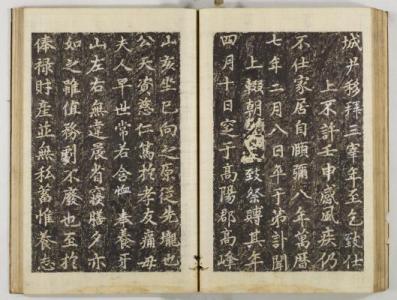 城尹移拜三宰年至乞致仕
上不許壬申感風疾仍
不仕家居自頤彌八年萬曆
七年二月八日卒于第訃聞
上輟朝
致祭賻其年
四月十日窆于高陽郡高峰
山亥坐巳向之原從先壠也
公天資慈仁篤於孝友痛母
夫人早世常若含恤奉養牙
山左右無違晨省寢膳夕亦
如之雖值務劇不廢也至於
俸祿財產並無私蓄惟養志